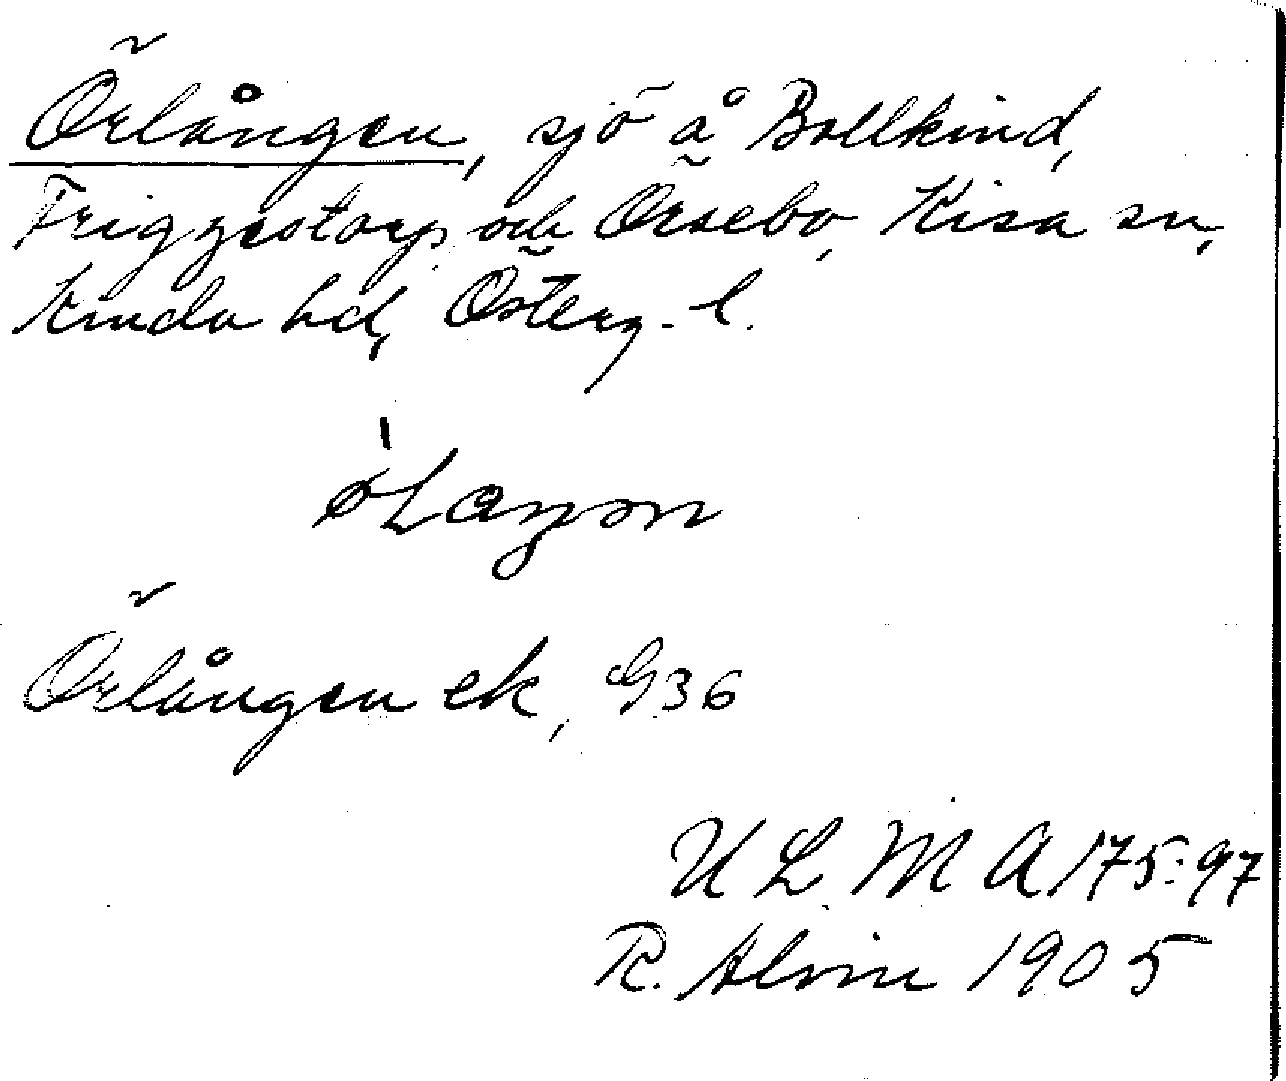 Örlången, sjö å Bollkind,
Friggestorp och Örsebo, Kisa sn,
Kinda hd, Österg. l.
Örlången ek, G36
U L M A 175:97
R. Alvin 1905